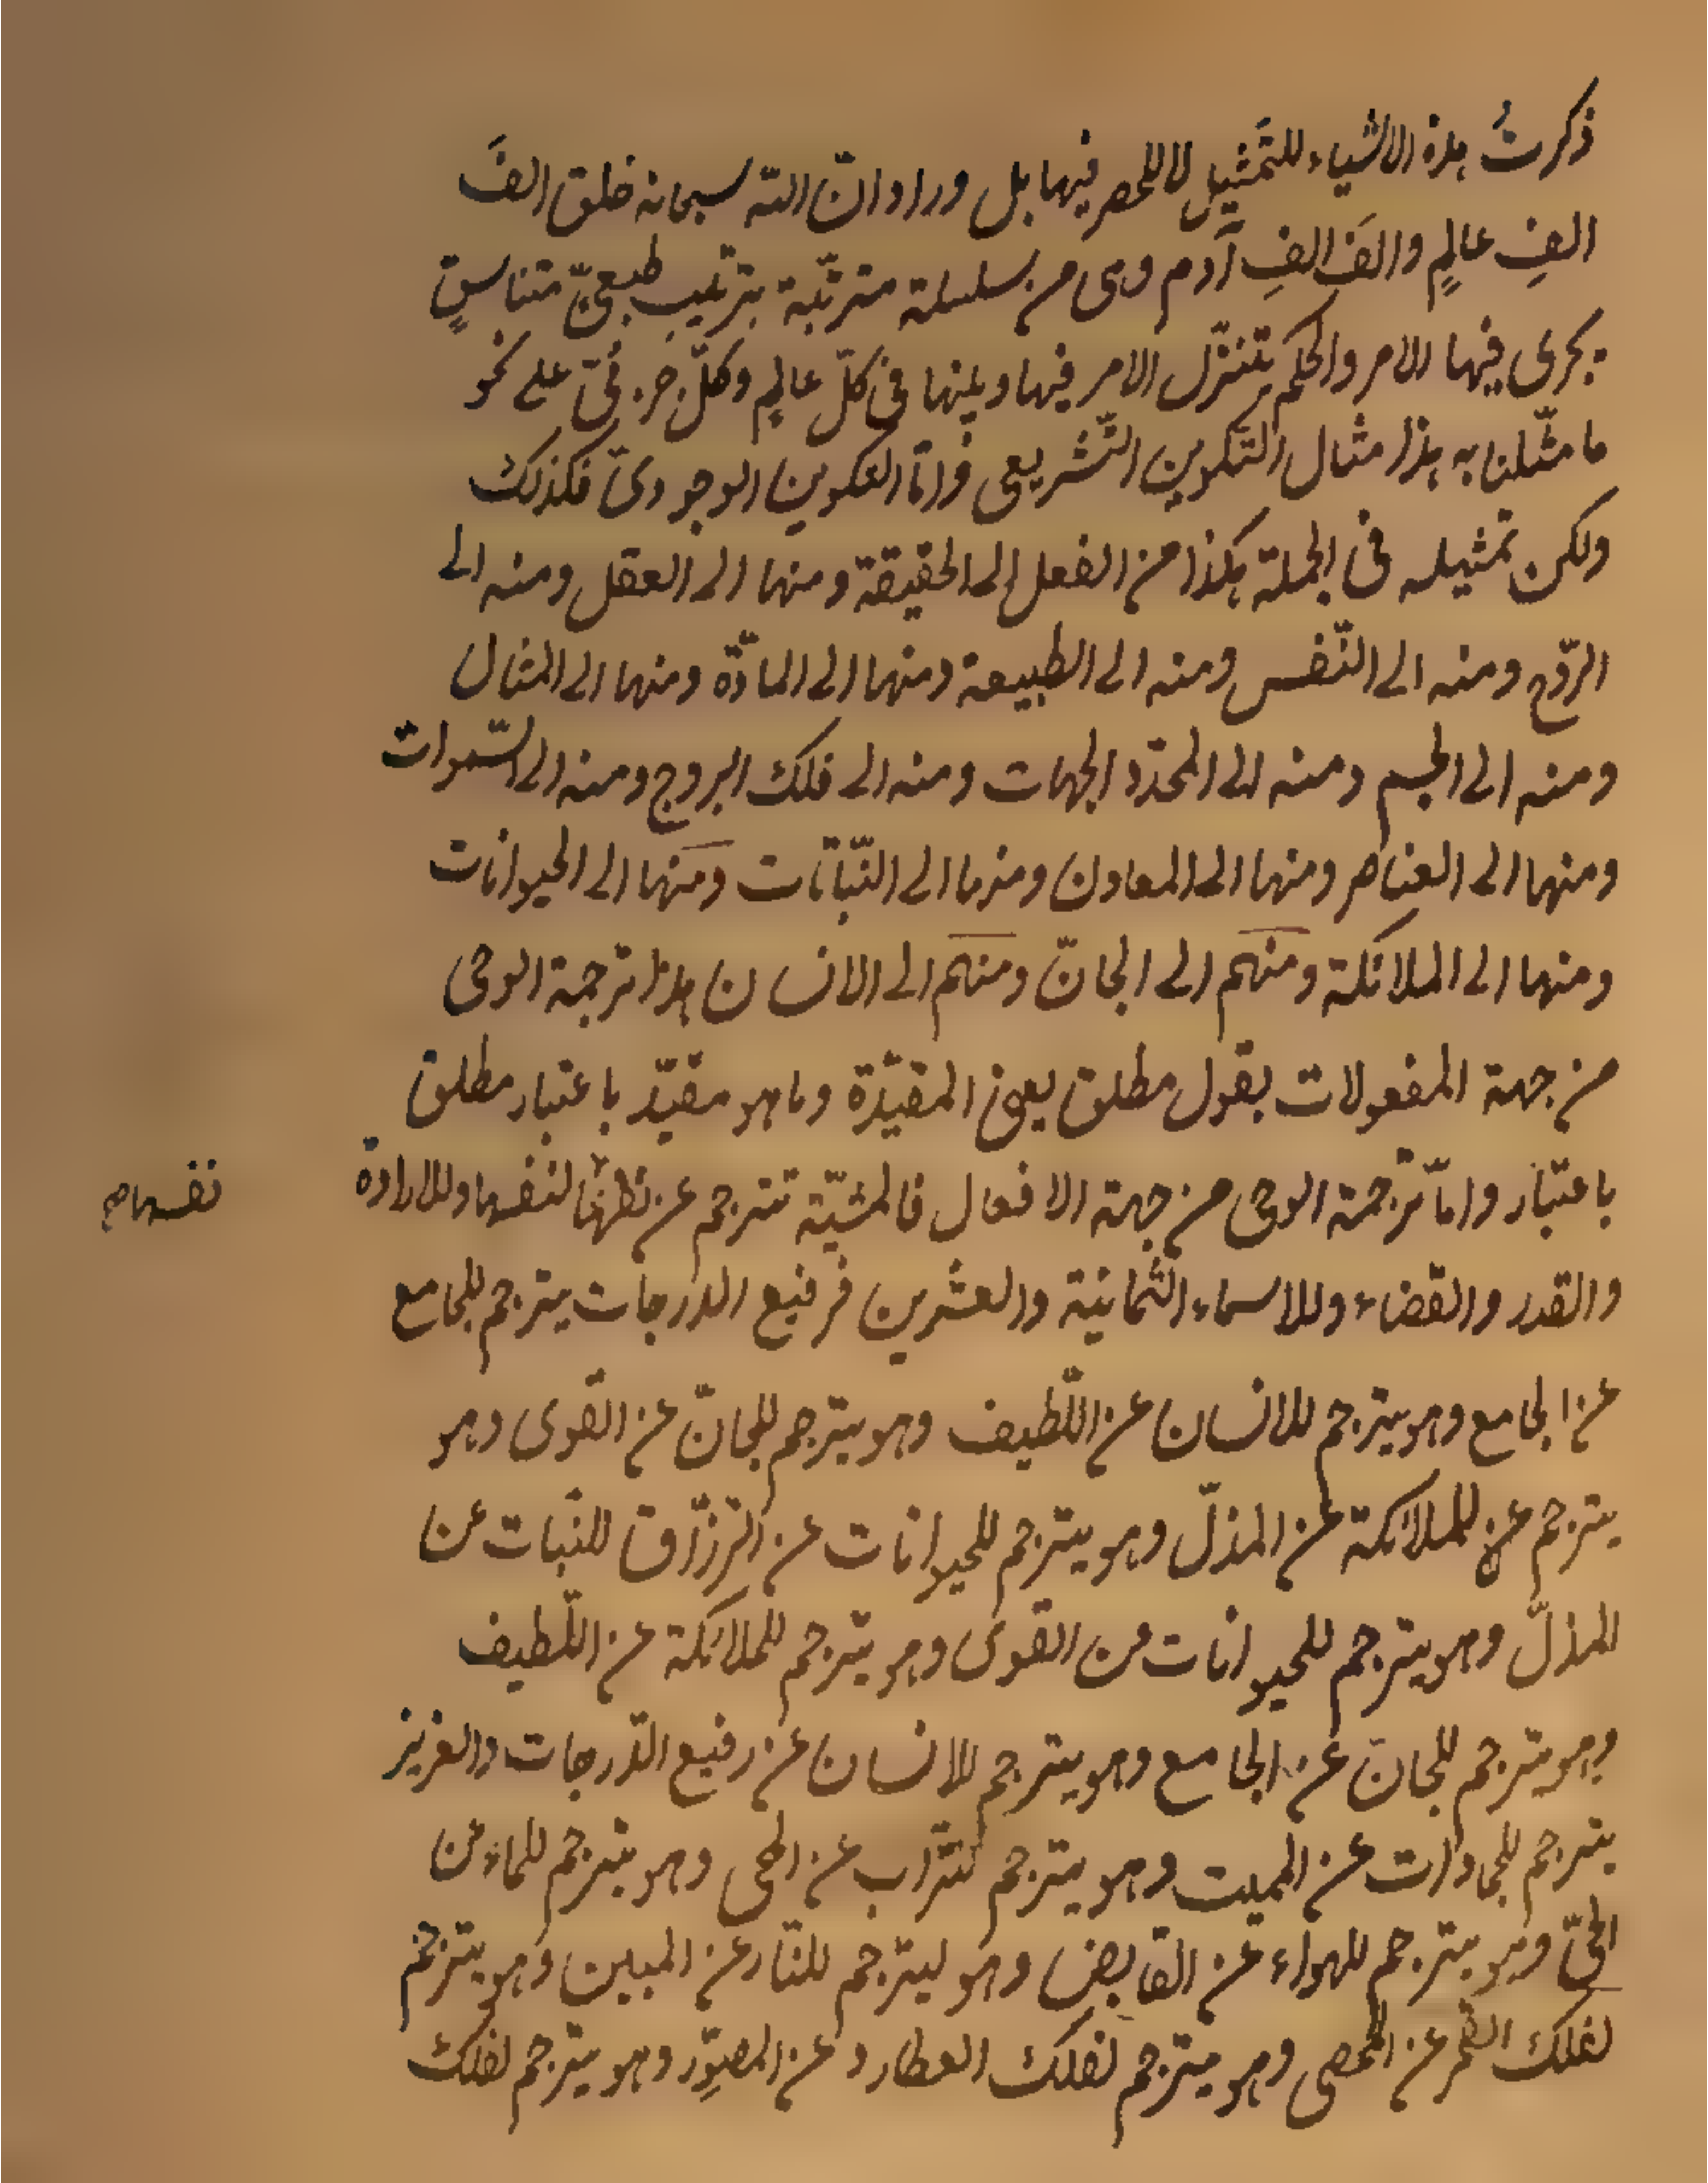 ذكرتُ هذه الاشياء للتّمثيل لا للحصر فيها بل ورد وانّ الله سبحانه خلق الفَ
الفِ عالمٍ والفَ الفِ آدم وهى من سلسلة مترتّبة بترتيب طبعىّ متناسق
يجرى فيها الامر والحكم يتنزّل الامر فيها وبينها فى كلّ عالمٍ وكلّ جزئىّ على نحو
ما مثّلنا به هذا مثال التّكوين التّشريعى وامّا التكوين الوجودىّ فكذلك
ولكن تمثيله فى الجملة هكذا من الفعل الى الحقيقة ومنها الى العقل ومنه الى
الرّوح ومنه الى النّفس ومنه الى الطبيعة ومنها الى المادّة ومنها الى المثال
ومنه الى الجسم ومنه الى المحدّد الجهات ومنه الى فلك البروج ومنه الى السّموات
ومنها الى العناصر ومنها الى المعادن ومنها الى النّباتات ومنها الى الحيوانات
ومنها الى الملائكة ومنهم الى الجانّ ومنهم الى الانسان هذا ترجمة الوحى
من جهة المفعولات بقول مطلق يعنى المقيّدة وما هو مقيّد باعتبار مطلق
باعتبار وامّا ترجمة الوحى من جهة الافعال فالمشيّة تترجم عن لنفسها وللارادة
نفسها صح
والقدر والقضاء وللاسماء الثّمانية والعشرين فرفيع الدّرجات يترجم للجامع
عن الجامع وهو يترجم للانسان عن اللّطيف وهو يترجم للجانّ عن القوى وهو
يترجم عن للملائكة عن المذلّ وهو يترجم للحيوانات عن الرّزّاق للنّبات عن
المذلّ وهو يترجم للحيوانات عن القوى وهو يترجم للملائكة عن اللّطيف
وهو يترجم للجانّ عن الجامع وهو يترجم للانسان عن رفيع الدّرجات والعزيز
يترجم للجمادات عن المميت وهو يترجم للتّراب عن المحى وهو يترجم للماء عن
الحىّ وهو يترجم للهواء عن القابض وهو يترجم للنّار عن المبين وهو يترجم
لفلك القمر عن المحصى وهو يترجم لفلك العطارد عن المصوّر وهو يترجم لفلك